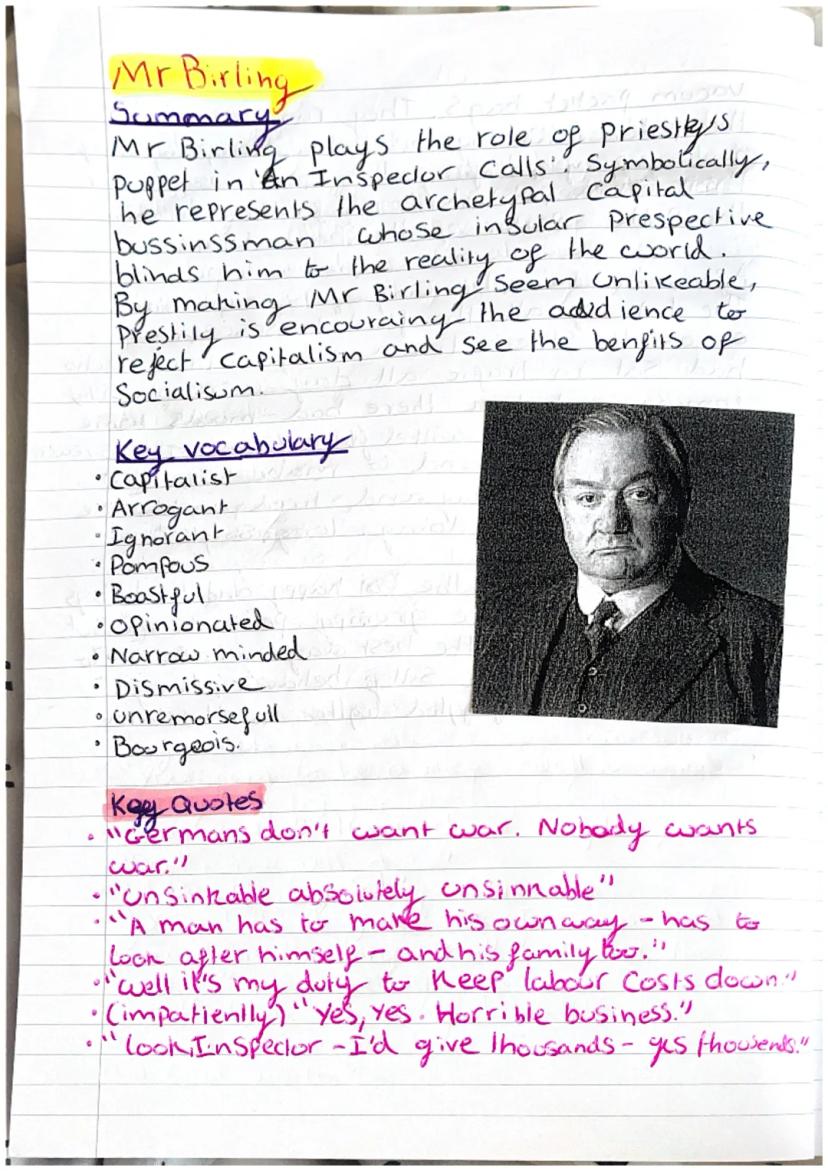 Mr Birling
Summary
Mr Birling plays the role of priestly's
puppet in 'An Inspector Calls'. Symbolically,
he represents the archetypal Capital
bussinssman whose insular prespective
blinds him to the reality of the world.
By making Mr Birling seem unlikeable,
Prestily is encouraing the audience to
reject capitalism and see the benfits of
Socialisum.
Key vocabulary
• Capitalist
• Arrogant
• Ignorant
• Pompous
• Boastful
• Opinionated
• Narrow minded
• Dismissive
• unremorsefull
• Bourgeois.
Key Quotes
• "Germans don't want war. Nobody wants
war."
• "unsinkable absolutely unsinkable"
• "A man has to make his own way - has to
look after himself - and his family too."
• "well it's my duty to keep labour costs down."
• (impatiently) "yes, yes. Horrible business."
• "look, Inspector - I'd give thousands - yes thousends."